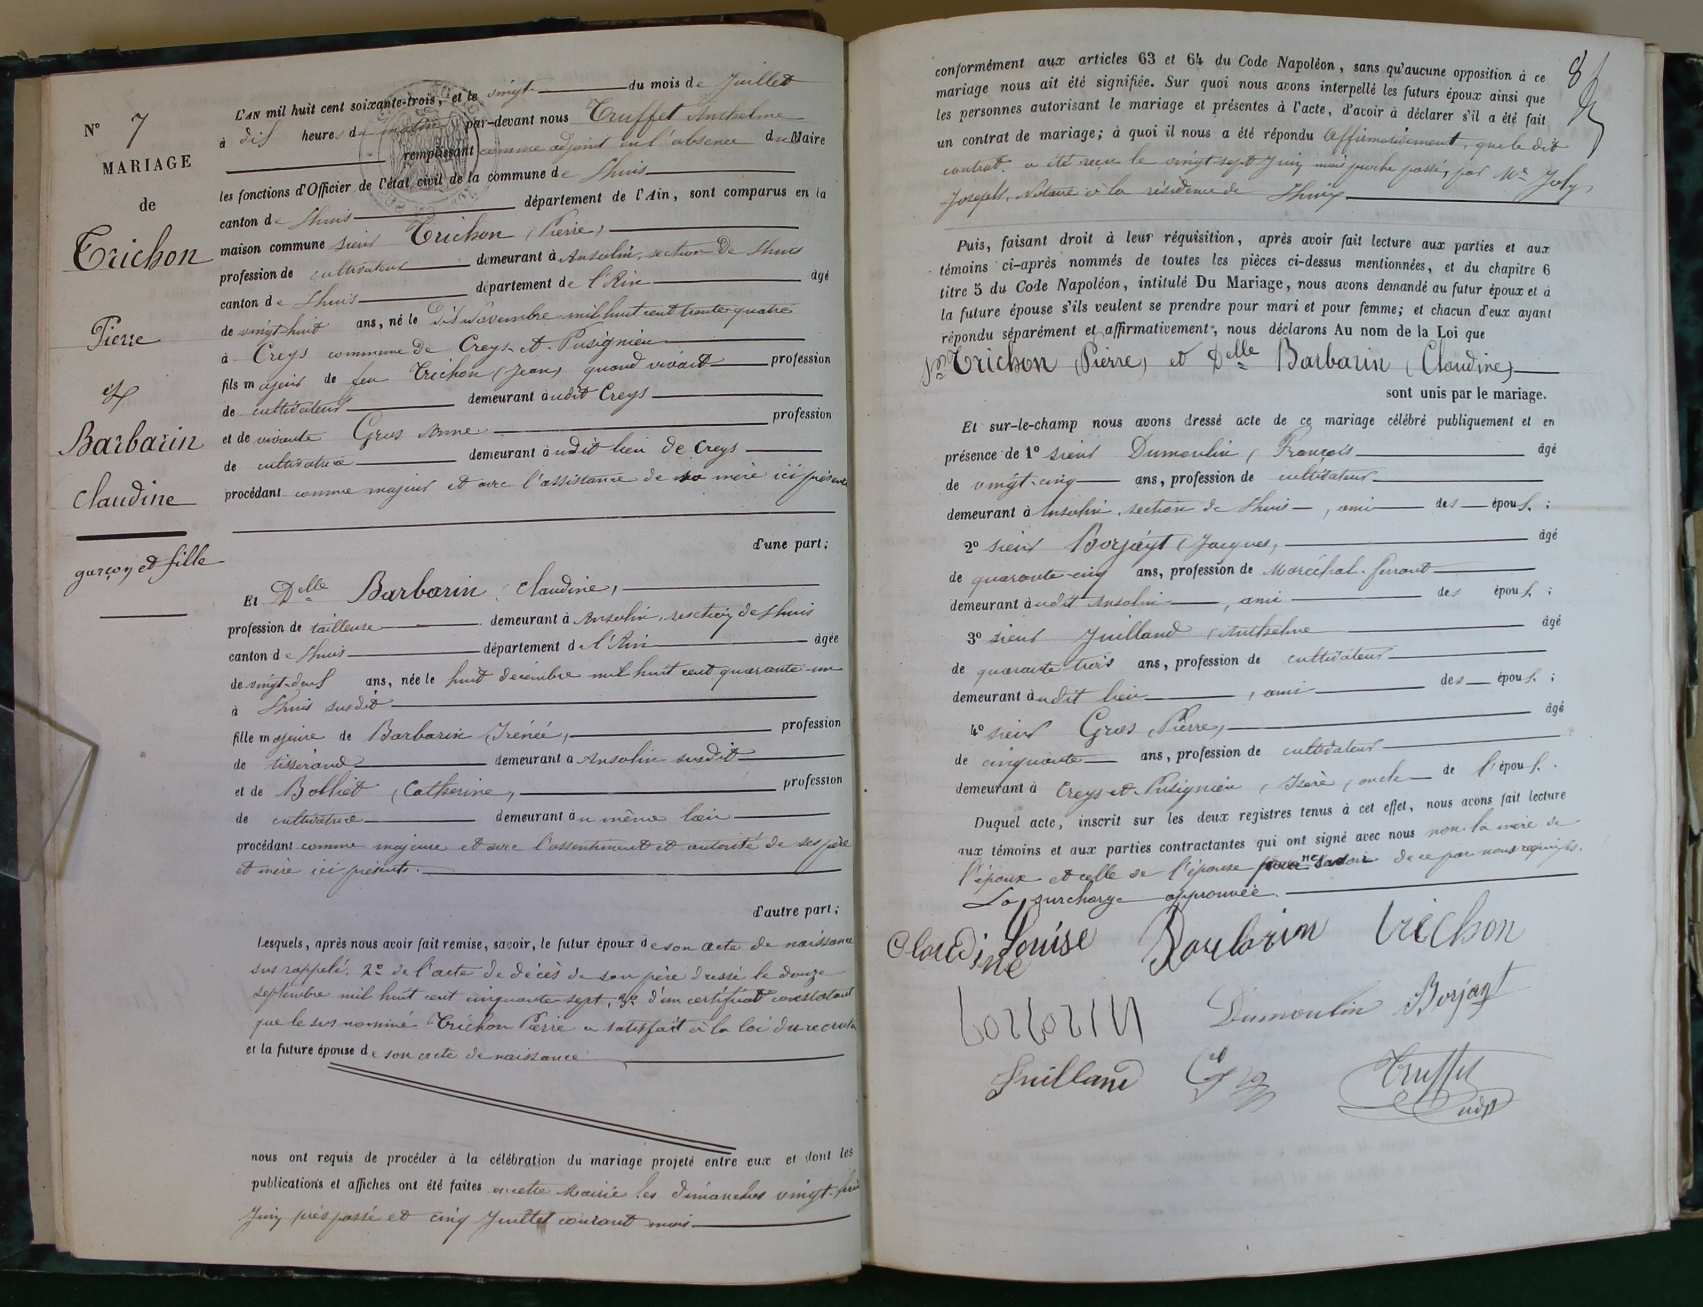 N° 7
MARIAGE
de
Trichon
Pierre
et
Barbarin
Claudine
garçon et fille
L'AN mil huit cent soixante-trois, et le vingt du mois de Juillet
à dix heures du matin par-devant nous Truffet Anthelme
remplissant comme adjoint en l'absence du Maire
les fonctions d'Officier de l'état civil de la commune de Lhuis
canton de Lhuis département de l'Ain, sont comparus en la
maison commune sieur Trichon (Pierre)
profession de cultivateur demeurant à Ansolin, section de Lhuis
canton de Lhuis département de l'Ain âgé
de vingt huit ans, né le dix Novembre mil huit cent trente quatre
à Creys commune de Creys-et-Pusignieu
fils majeur de feu Trichon (Jean) quand vivait profession
de cultivateur demeurant audit Creys
et de vivante Gros Anne profession
de cultivatrice demeurant audit lieu de Creys
procédant comme majeur et avec l'assistance de sa mère ici présente
d'une part;
Et Delle Barbarin (Claudine)
profession de tailleuse demeurant à Ansolin, section de Lhuis
canton de Lhuis département de l'Ain âgée
de vingt-deux ans, née le huit décembre mil huit cent quarante-un
à Lhuis susdit
fille majeure de Barbarin (Irénée) profession
de tisserand demeurant à Ansolin susdit
et de Bolliet (Catherine) profession
de cultivatrice demeurant au même lieu
procédant comme majeure et avec l'assentiment et autorité de ses père
et mère ici présents.
d'autre part;
Lesquels, après nous avoir fait remise, savoir, le futur époux de son acte de naissance
sus rappelé. 2° de l'acte de décès de son père dressé le douze
septembre mil huit cent cinquante-sept, 3° d'un certificat constatant
que le sus nommé Trichon Pierre a satisfait à la loi du recrute
et la future épouse de son acte de naissance
nous ont requis de procéder à la célébration du mariage projeté entre eux et dont les
publications et affiches ont été faites en cette Mairie les dimanches vingt-huit
Juin près passé et cinq Juillet courant mois
conformément aux articles 63 et 64 du Code Napoléon, sans qu'aucune opposition à ce
mariage nous ait été signifiée. Sur quoi nous avons interpellé les futurs époux ainsi que
les personnes autorisant le mariage et présentes à l'acte, d'avoir à déclarer s'il a été fait
un contrat de mariage; à quoi il nous a été répondu affirmativement, que le dit
contrat a été reçu le vingt-sept Juin mois proche passé, par Me Joly,
Joseph, Notaire à la résidence de Lhuis
Puis, faisant droit à leur réquisition, après avoir fait lecture aux parties et aux
témoins ci-après nommés de toutes les pièces ci-dessus mentionnées, et du chapitre 6
titre 5 du Code Napoléon, intitulé Du Mariage, nous avons demandé au futur époux et à
la future épouse s'ils veulent se prendre pour mari et pour femme; et chacun d'eux ayant
répondu séparément et affirmativement, nous déclarons Au nom de la Loi que
Trichon (Pierre) et Delle Barbarin (Claudine)
sont unis par le mariage.
Et sur-le-champ nous avons dressé acte de ce mariage célébré publiquement et en
présence de 1° sieur Dumoulin (François) âgé
de vingt-cinq ans, profession de cultivateur
demeurant à Ansolin, section de Lhuis, ami des époux;
2° sieur Borjayt (Jacques) âgé
de quarante-cinq ans, profession de Maréchal-ferrant
demeurant audit Ansolin, ami des époux;
3° sieur Juilland (Anthelme) âgé
de quarante trois ans, profession de cultivateur
demeurant audit lieu, ami des époux;
4° sieur Gros (Pierre) âgé
de cinquante ans, profession de cultivateur
demeurant à Creys-et-Pusignieu (Isère), oncle de l'époux.
Duquel acte, inscrit sur les deux registres tenus à cet effet, nous avons fait lecture
aux témoins et aux parties contractantes qui ont signé avec nous non la mère de
l'époux et celle de l'épouse pour ne savoir de ce par nous requises.
La surcharge approuvée.
Claudine Louise Barbarin Trichon
barbarin Dumoulin Borjayt
Juilland Truffet
adjt